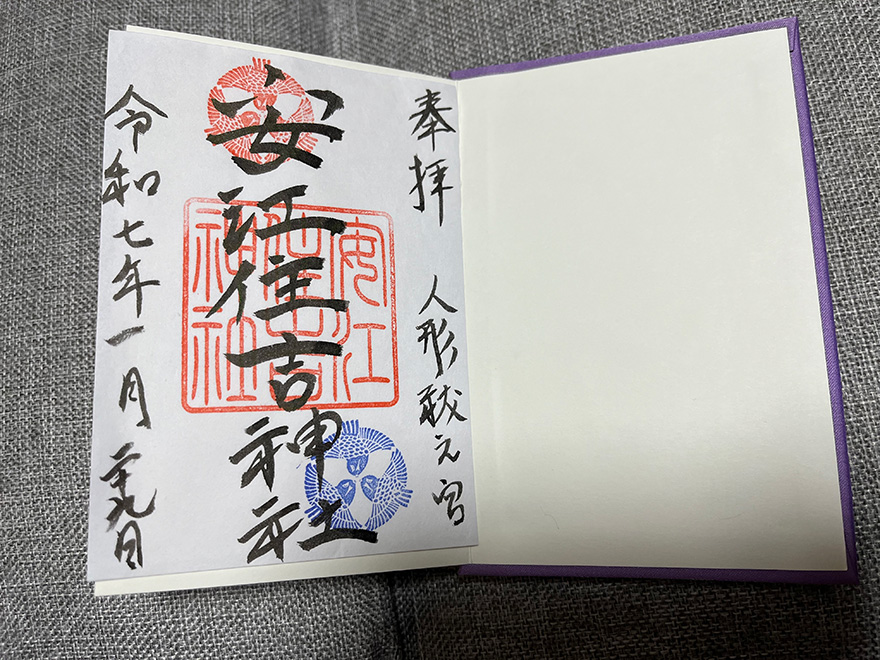 奉拝 人形祓元宮
安江住吉神社
安江住吉神社
令和七年一月二十九日